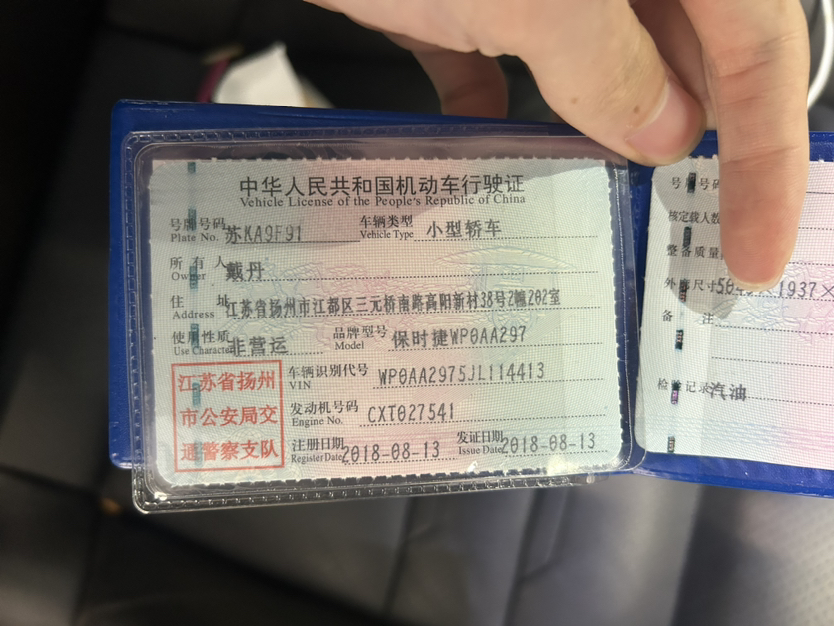 中华人民共和国机动车行驶证
Vehicle License of the People's Republic of China
号牌号码 苏KA9F91 车辆类型 小型轿车
Plate No. Vehicle Type
所有人 戴丹
Owner
住址 江苏省扬州市江都区三元桥南路高阳新村38号2幢202室
Address
使用性质 非营运 品牌型号 保时捷WP0AA297
Use Character Model
车辆识别代号 WP0AA2975JL114413
VIN
发动机号码 CXT027541
Engine No.
注册日期 2018-08-13 发证日期 2018-08-13
Register Date Issue Date
江苏省扬州
市公安局交
通警察支队
号牌号码
核定载人数
整备质量
外廓尺寸 1937×
备注
检验记录 汽油